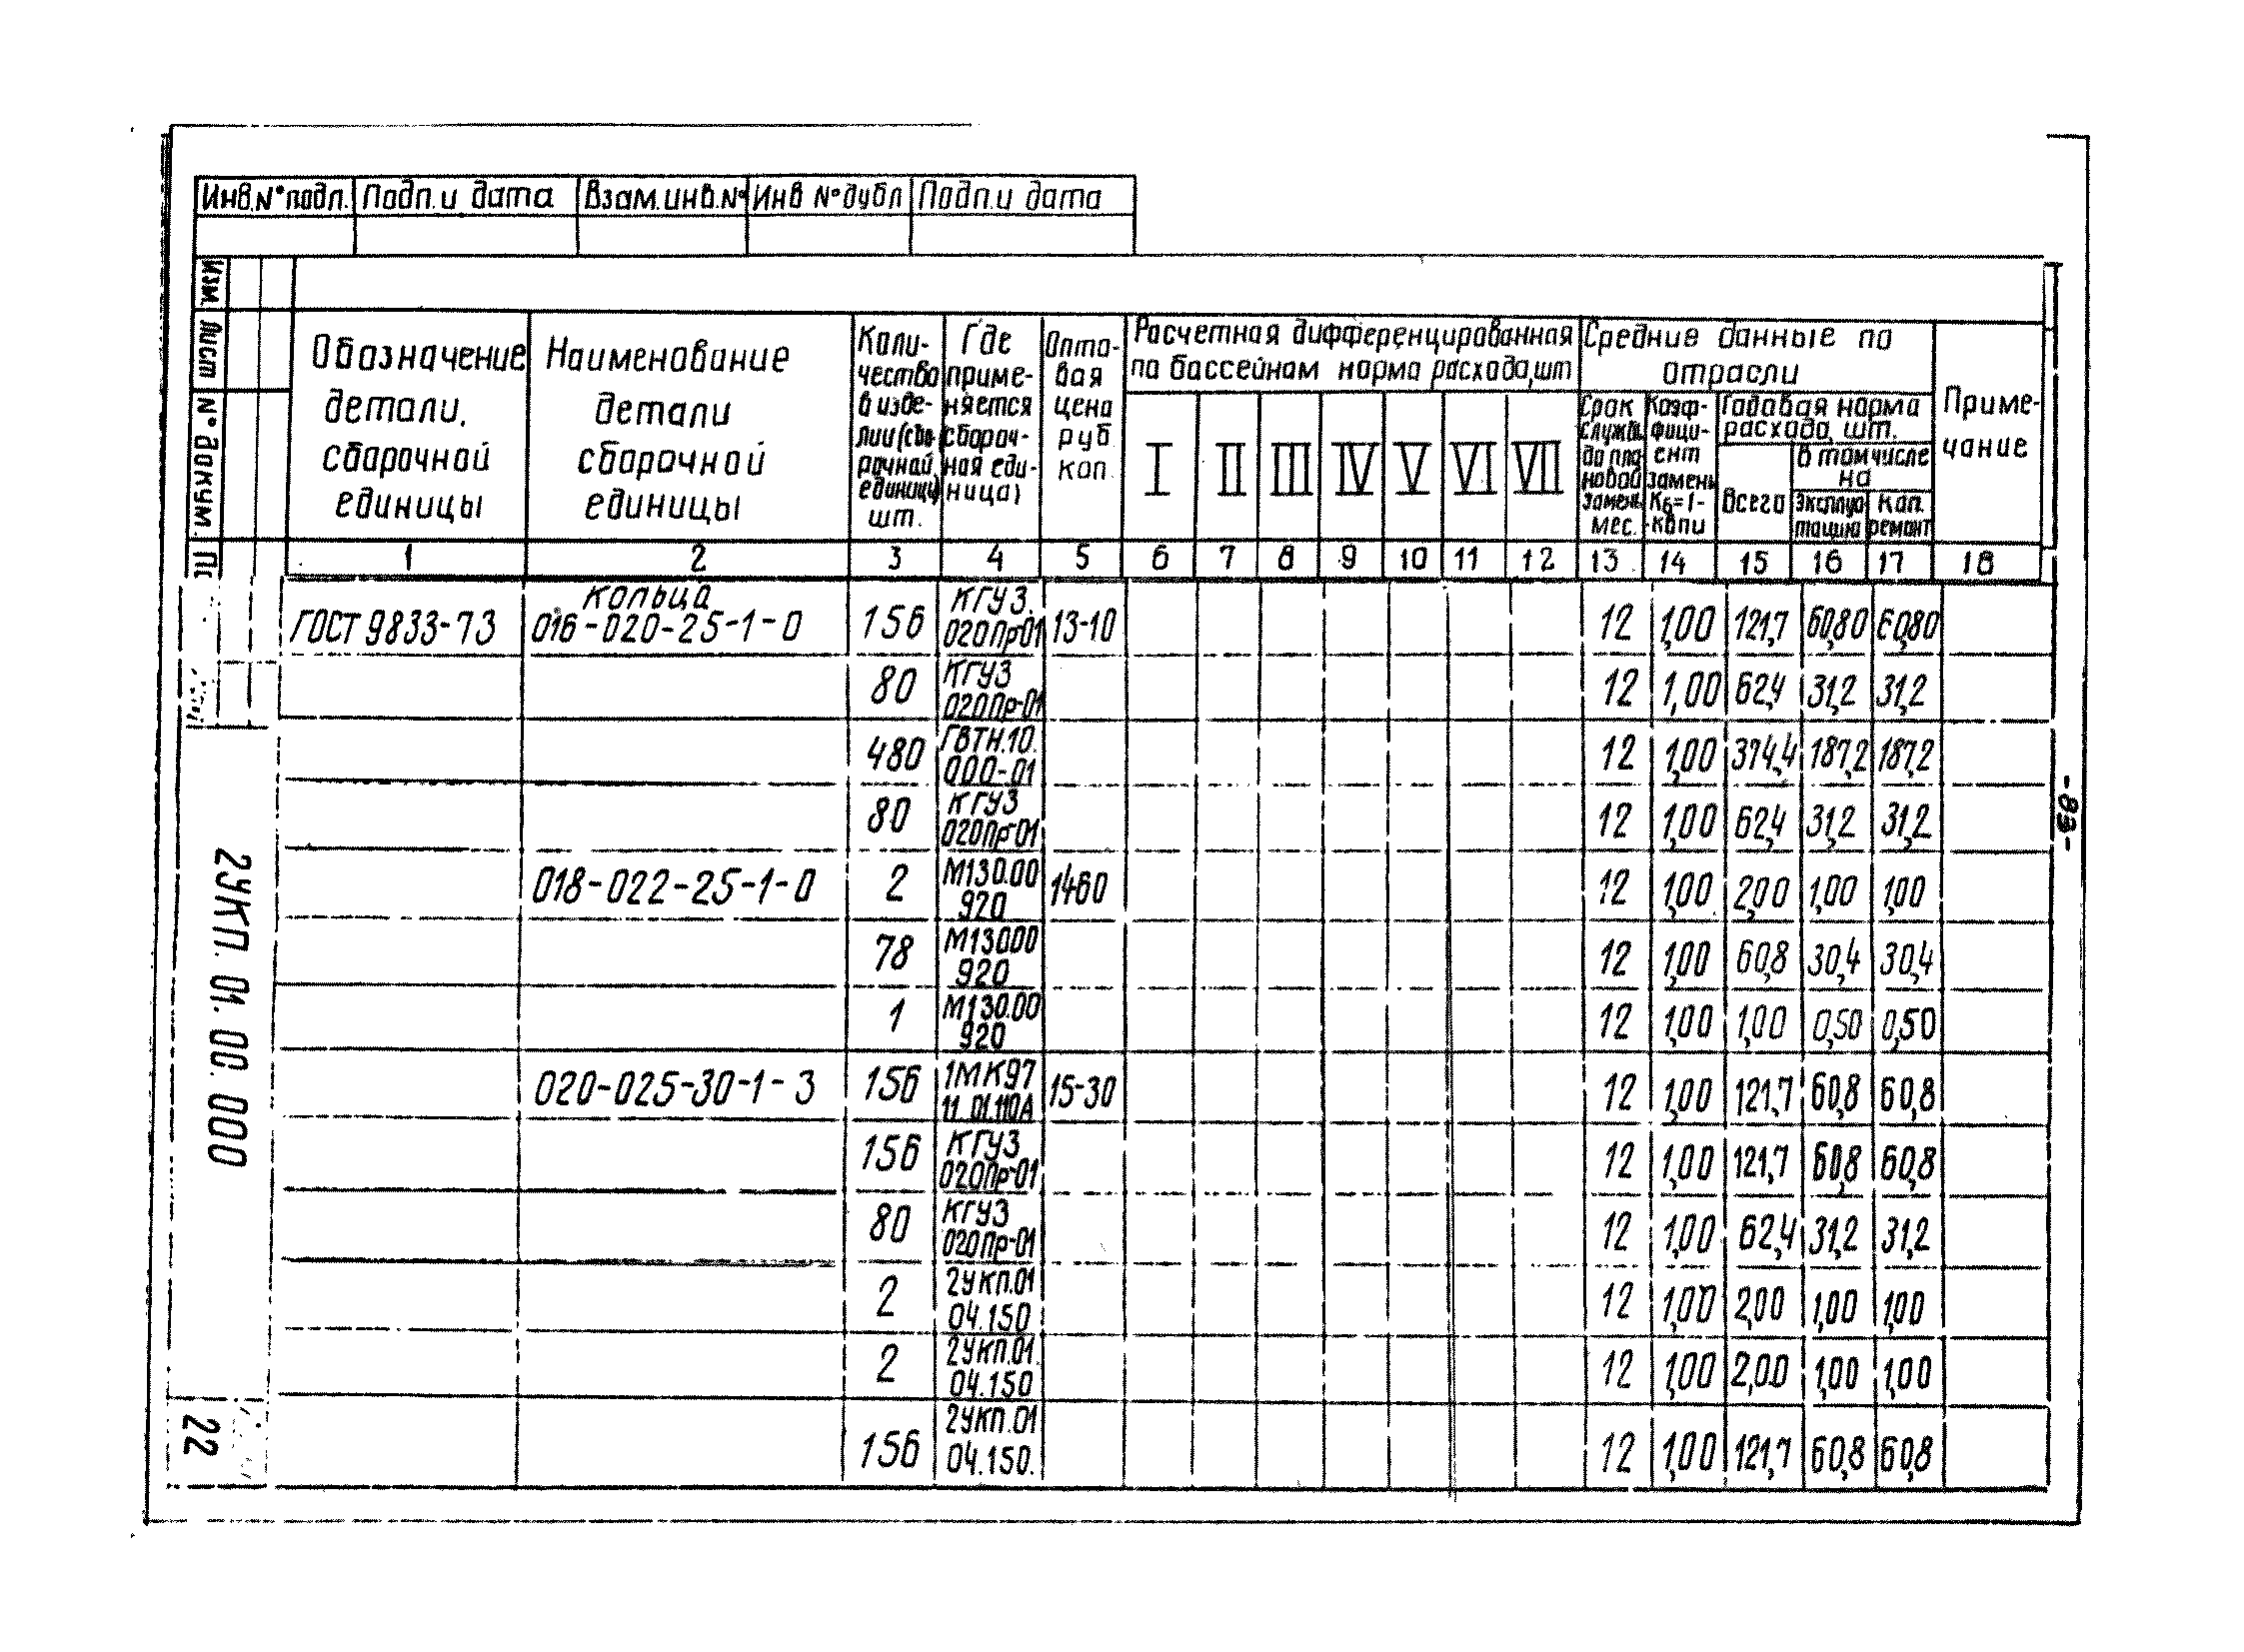 Инв.№ подл. Подп.и дата Взам.инв.№ Инв №дубл Подп.и дата
Изм. Лист № докум.
Обозначение детали, сборочной единицы
Наименование детали сборочной единицы
Коли-
чество
в изде-
лии (сбо-
рочной
единицы)
шт.
Где
приме-
няется
(сбороч-
ная еди-
ница)
Опто-
вая
цена
руб.
коп.
Расчетная дифференцированная
по бассейнам норма расхода, шт
I II III IV V VI VII
Средние данные по
отрасли
Срок
службы
до пла
новой
замены
мес.
Коэф-
фици-
ент
замены
Kб=1-
-копи
Годовая норма
расхода, шт.
Всего
в том числе
на
Эксплуа
тацию
Кап.
ремонт
Приме-
чание
1 2 3 4 5 6 7 8 9 10 11 12 13 14 15 16 17 18
Кольца КГУЗ.
ГОСТ 9833-73 016-020-25-1-0 156 020Пр01 13-10 12 1,00 121,7 60,80 60,80
80 КГУЗ 020Пр-01 12 1,00 62,4 31,2 31,2
480 ГВТН.10. 000-01 12 1,00 374,4 187,2 187,2
80 КГУЗ 020Пр-01 12 1,00 62,4 31,2 31,2
018-022-25-1-0 2 М130.00 920 1460 12 1,00 2,00 1,00 1,00
78 М13000 920 12 1,00 60,8 30,4 30,4
1 М130.00 920 12 1,00 1,00 0,50 0,50
020-025-30-1-3 156 1МК97 11 01.110А 15-30 12 1,00 121,7 60,8 60,8
156 КГУЗ 020Пр-01 12 1,00 121,7 60,8 60,8
80 КГУЗ 020Пр-01 12 1,00 62,4 31,2 31,2
2 2УКП.01 04.150 12 1,00 2,00 1,00 1,00
2 2УКП.01. 04.150 12 1,00 2,00 1,00 1,00
156 2УКП.01 04.150. 12 1,00 121,7 60,8 60,8
2УКП. 01. 00. 000
22
-83-